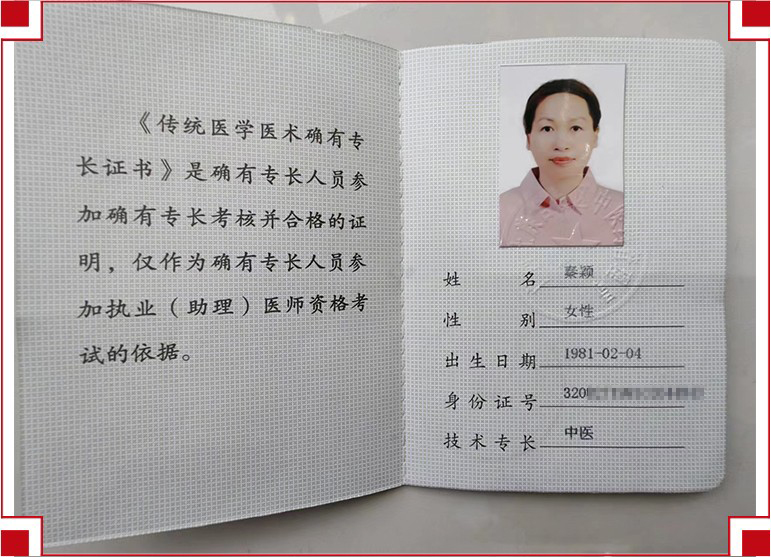 《传统医学医术确有专
长证书》是确有专长人员参
加确有专长考核并合格的证
明，仅作为确有专长人员参
加执业（助理）医师资格考
试的依据。
姓名 秦颖
性别 女性
出生日期 1981-02-04
身份证号 320
技术专长 中医